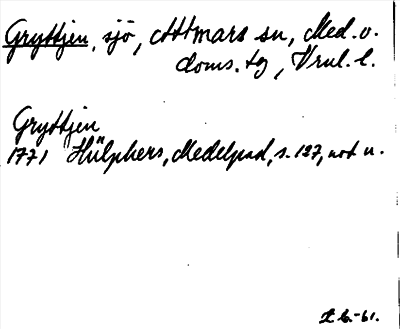 Gryttjen, sjö, Attmars sn, Med. v.
doms. tg, Vrul. l.
Gryttjen
1771 Hülphers, Medelpad, s. 127, not u.